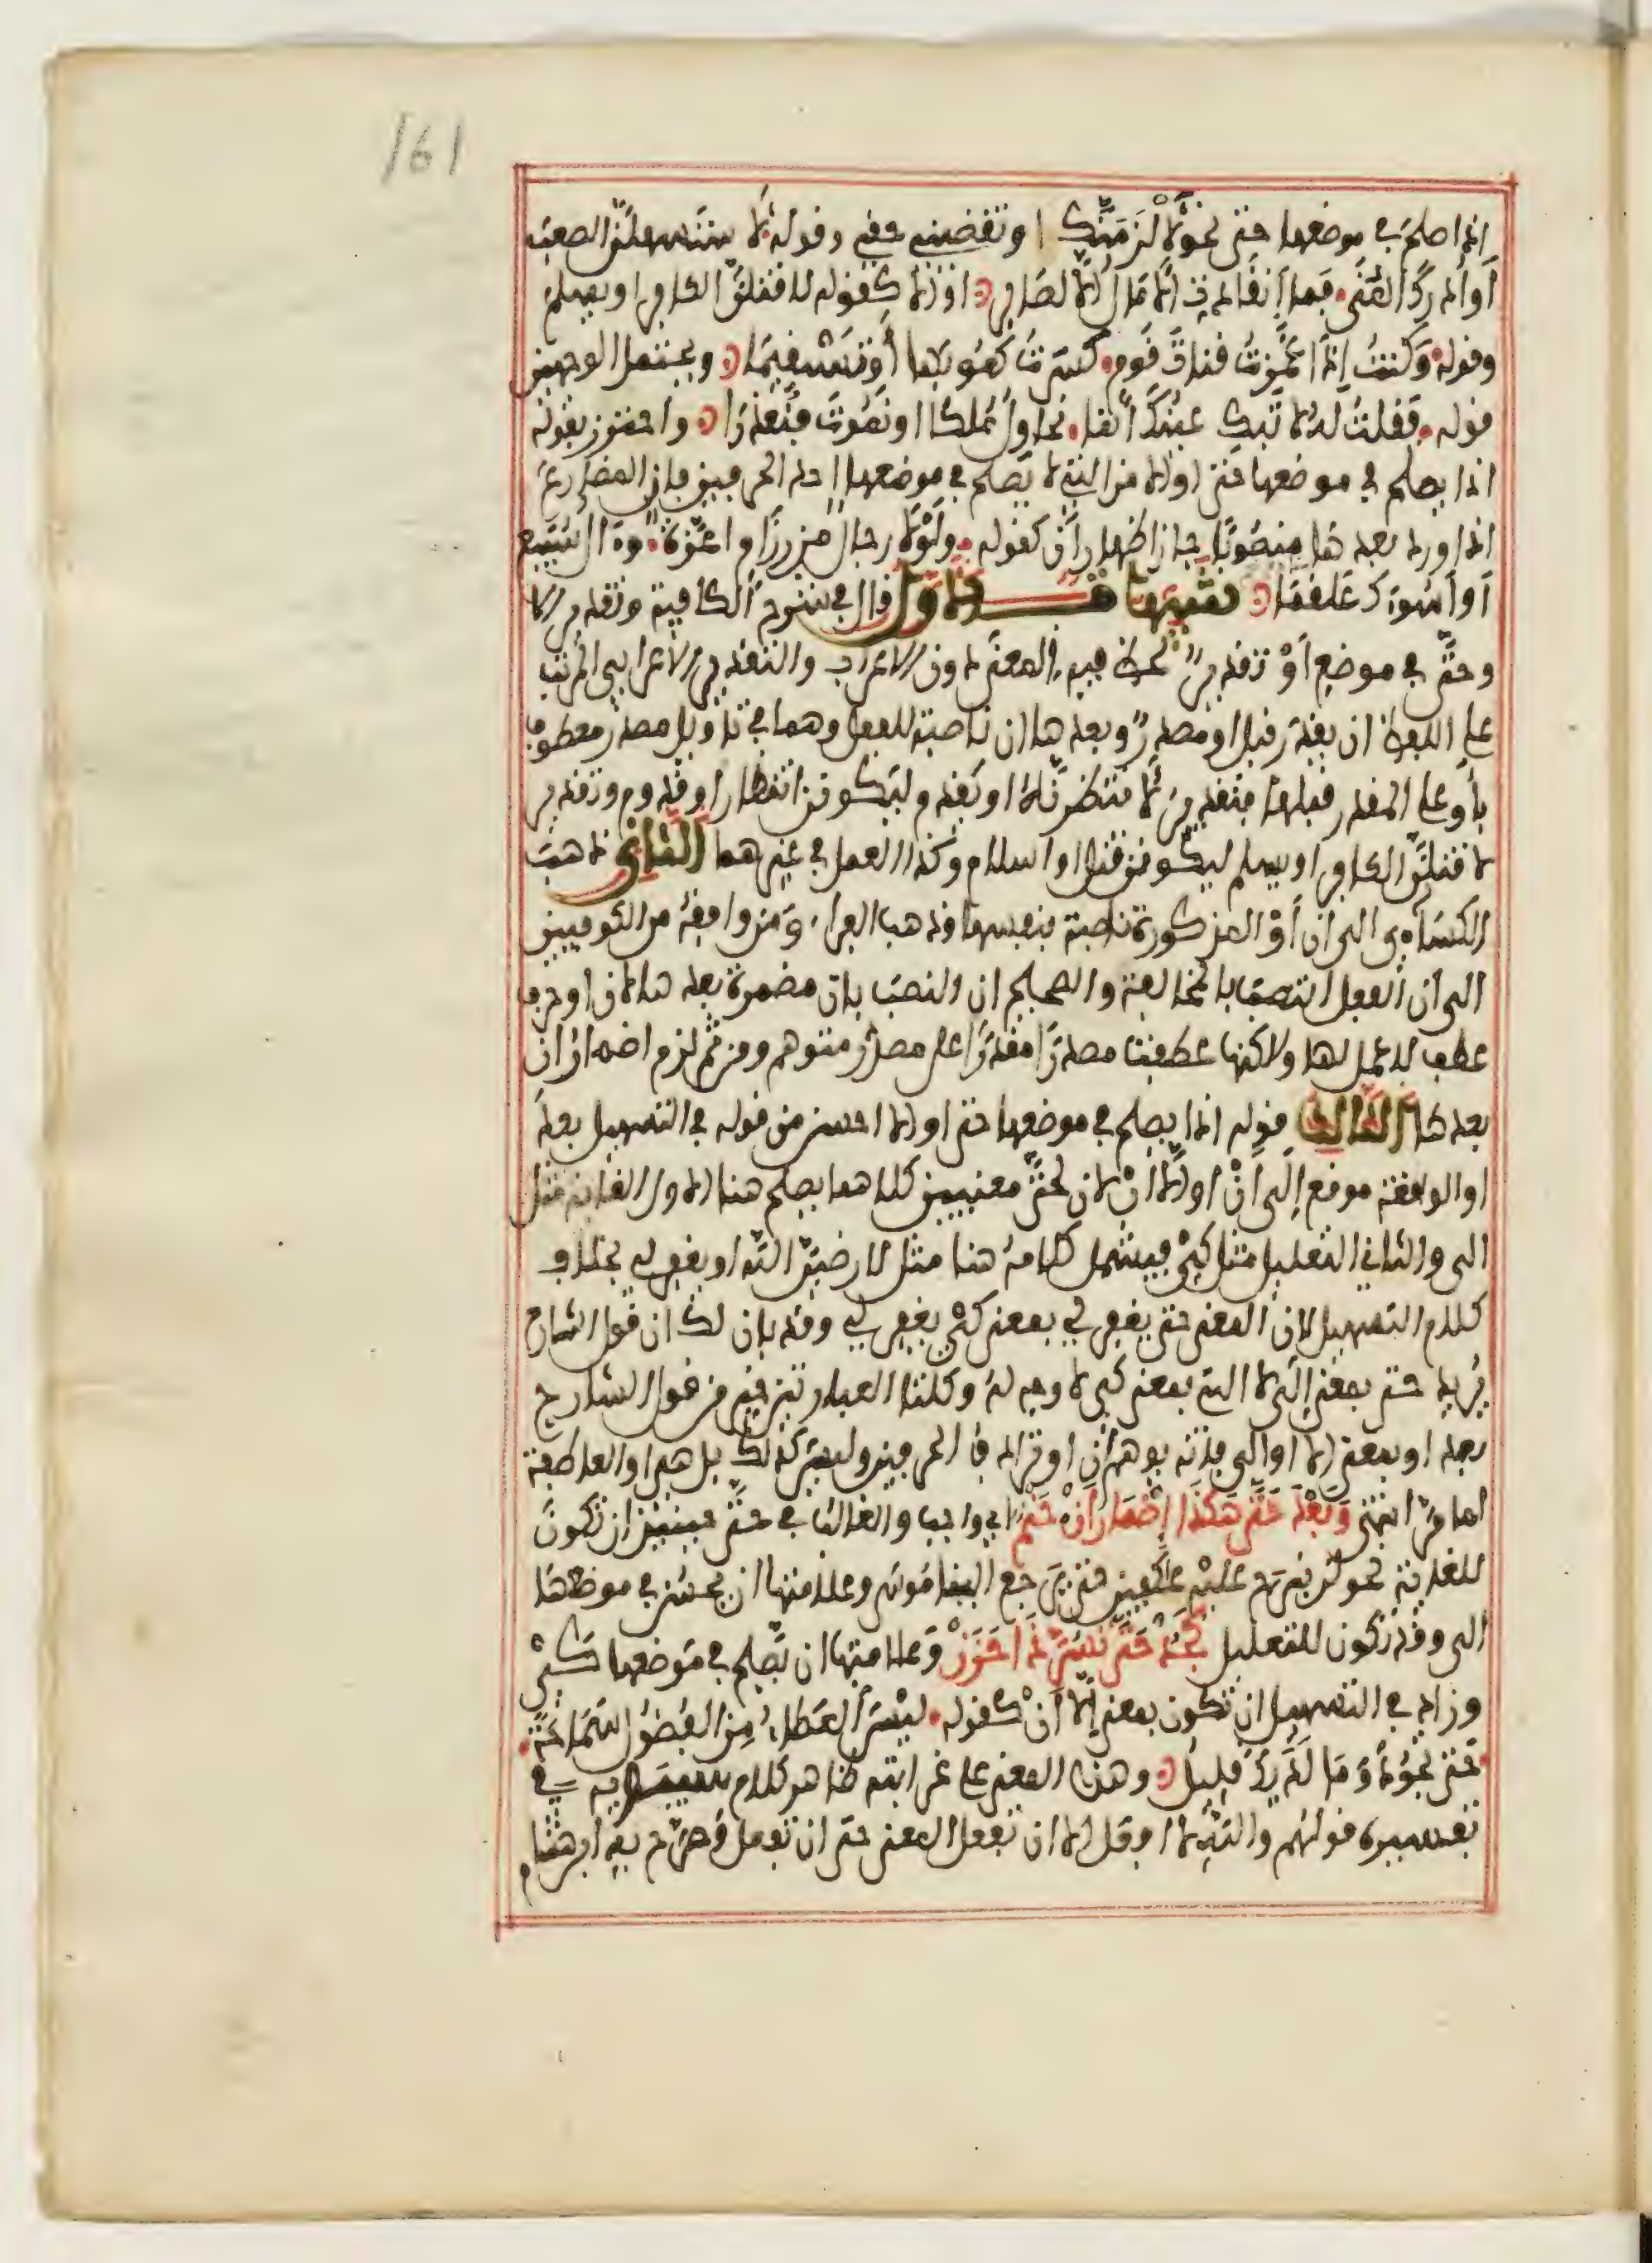 161
اذا صلح في موضعها حتى نحو لألزمنك او تقضيني حقي وقوله لأستسهلن الصعب
أو أدرك المنى فما انقادت الآمال إلا لصابر او إلا كقوله لاقتلن الكافر او يسلم
وقوله وكنت إذا غمزت قناة قوم كسرت كعوبها أو تستقيما ويحتمل الوجهين
قوله فقلت له لا تبك عينك انما نحاول ملكا او نموت فنعذرا واحترز بقوله
اذا يصلح في موضعها حتى او الا من التي لا يصلح في موضعها احد الحرفين فان المضارع
اذا ورد بعدها منصوبا جاز اظهار أن كقوله ولولا رجال من رزام اعزة وآل سبيع
أو أسوءك علقما تنبيهات الأول قال في شرح الكافية وتقدير الا
وحتى في موضع أو تقدير لحظ فيه المعنى دون الاعراب والتقدير الاعرابي المرتب
على اللفظ ان يقدر قبل او مصدر وبعدها ان ناصبة للفعل وهما في تأويل مصدر معطوف
بأو على المقدر قبلها فتقدير لأنتظرنه او يقدم ليكونن انتظار او قدوم وتقدير
لاقتلن الكافر او يسلم ليكونن قتل او اسلام وكذا العمل في غيرهما الثاني ذهب
الكساءي الى ان أو المذكورة ناصبة بنفسها وذهب الفراء ومن وافقه من الكوفيين
الى ان الفعل انتصب بالمخالفة والصحيح ان النصب بان مضمرة بعدها لان او حرف
عطف لا عمل لها ولاكنها عطفت مصدرا مقدرا على مصدر متوهم ومن ثم لزم اضمار ان
بعدها الثالث قوله اذا يصلح في موضعها حتى او الا احسن من قوله في التسهيل بعد
او الواقعة موقع إلى أن او إلا أن لان لحتى معنيين كلاهما يصلح هنا الاول الغاية مثل
الى والثاني التعليل مثل كي فيشمل كلامه هنا مثل لارضين الله او يغفر لي بخلاف
كلام التسهيل لان المعنى حتى يغفر لي بمعنى كي يغفر لي وقد بان لك ان قول الشارح
يريد حتى بمعنى إلى لا التي بمعنى كي لا وجه له وكلتا العبارتين خير من قول الشارح
بعد او بمعنى الا او الى فانه يوهم أن او ترادف الحرفين وليس كذلك بل هي او العاطفة
كما مر انتهى وبعد حتى هكذا إضمار أن حتم اي واجب والغالب في حتى حينئذ ان تكون
للغاية نحو لن نبرح عليه عاكفين حتى يرجع الينا موسى وعلامتها ان يحسن في موضعها
الى وقد تكون للتعليل كجد حتى تسر ذا حزن وعلامتها ان يصلح في موضعها كي
وزاد في التسهيل ان تكون بمعنى إلا أن كقوله ليس العطاء من الفضول سماحة
حتى تجود وما لديك قليل وهذا المعنى على غرابته ظاهر كلام سيبويه في
تفسيره قولهم والله لا افعل الا ان تفعل المعنى حتى ان تفعل وصرح به ابن هشام